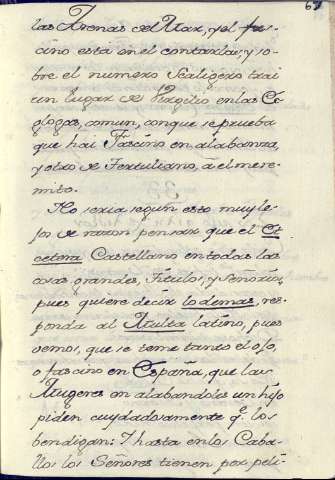 67
las Arenas del Mar, y el fas-
cino está en el contarlas; y so-
bre el numero Scaligero trai
un lugar de Virgilio en las Eg-
glogas, comun, con que se prueba
que hai Fascino en alabanza,
y otro de Tertuliano, á el mere-
mito.
No seria segun esto muy le-
jos de razon pensar que el Et-
cetera Castellano en todas las
cosas grandes, Titulos, y Señorios,
pues quiere decir lo demas, res-
ponda al Multa latino, pues
vemos, que se teme tanto el ojo,
o fascino en España, que las
Mugeres en alabandoles un hijo
piden cuydadosamente q.e los
bendigan: I hasta en los Caba-
llos los Señores tienen por peli-